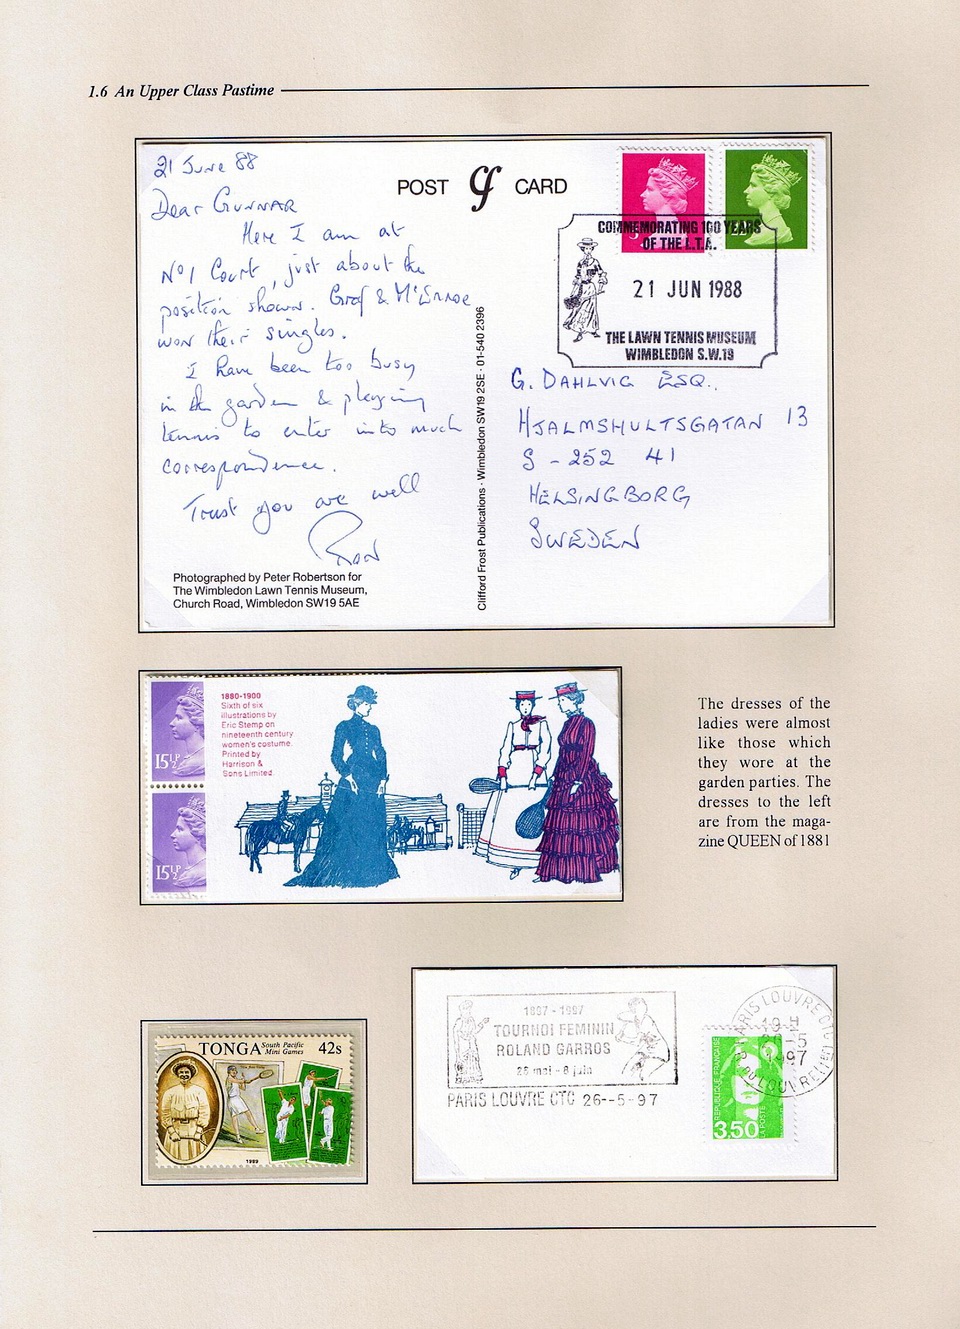 1.6 An Upper Class Pastime
21 June 88
Dear GUNNAR
Here I am at
No 1 Court, just about the
position shown. Graf & McEnroe
won their singles.
I have been too busy
in the garden & playing
tennis to enter into much
correspondence.
Trust you are well
RON
Photographed by Peter Robertson for
The Wimbledon Lawn Tennis Museum,
Church Road, Wimbledon SW19 5AE
POST CARD
Clifford Frost Publications · Wimbledon SW19 2SE · 01-540 2396
COMMEMORATING 100 YEARS
OF THE L.T.A.
21 JUN 1988
THE LAWN TENNIS MUSEUM
WIMBLEDON S.W.19
G. DAHLVIG ESQ..
HJALMSHULTSGATAN 13
S - 252 41
HELSINGBORG
SWEDEN
15½P
15½P
1880-1900
Sixth of six
illustrations by
Eric Stemp on
nineteenth century
women's costume.
Printed by
Harrison &
Sons Limited.
The dresses of the
ladies were almost
like those which
they wore at the
garden parties. The
dresses to the left
are from the maga-
zine QUEEN of 1881
TONGA South Pacific
Mini Games 42s
1989
1897 - 1997
TOURNOI FEMININ
ROLAND GARROS
26 mai - 8 juin
PARIS LOUVRE CTC 26--5-97
PARIS LOUVRE CTC
19 H
-5
97
R. DU LOUVRE
REPUBLIQUE FRANÇAISE
LA POSTE
3,50